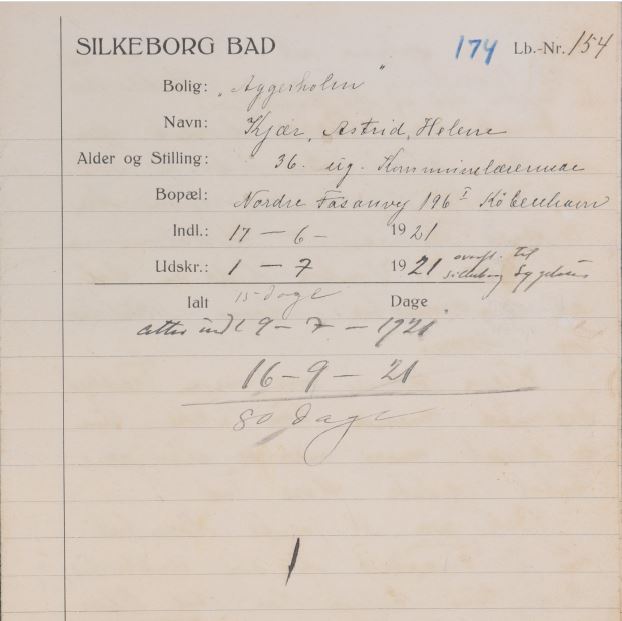 SILKEBORG BAD 174 Lb.-Nr. 154
Bolig: „Aggersholm"
Navn: Kjær, Astrid, Helene
Alder og Stilling: 36. ug. Kommunelærerinde
Bopæl: Nordre Fasanvej 196 I København
Indl.: 17 – 6 – 1921
Udskr.: 1 – 7 1921 overf. til
Silkeborg Sygehus
Ialt 15 dage Dage
atter indl 9 – 7 – 1921
16 – 9 – 21
80 dage